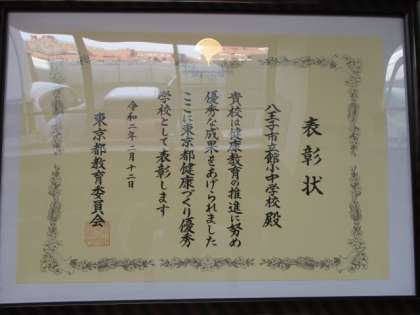 表彰状
八王子市立館小中学校 殿
貴校は健康教育の推進に努め
優秀な成果をあげられました
ここに東京都健康づくり優秀
学校として表彰します
令和二年二月十二日
東京都教育委員会